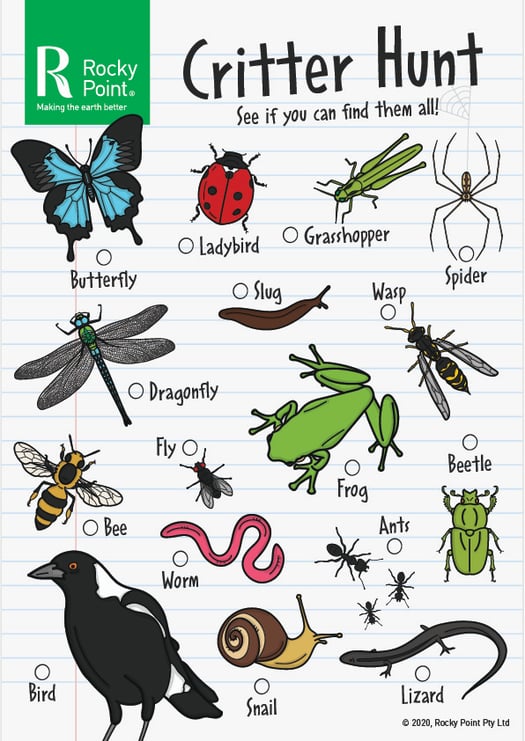 Rocky
Point®
Making the earth better
Critter Hunt
See if you can find them all!
Butterfly
Ladybird
Grasshopper
Spider
Slug
Wasp
Dragonfly
Fly
Frog
Beetle
Bee
Worm
Ants
Bird
Snail
Lizard
© 2020, Rocky Point Pty Ltd